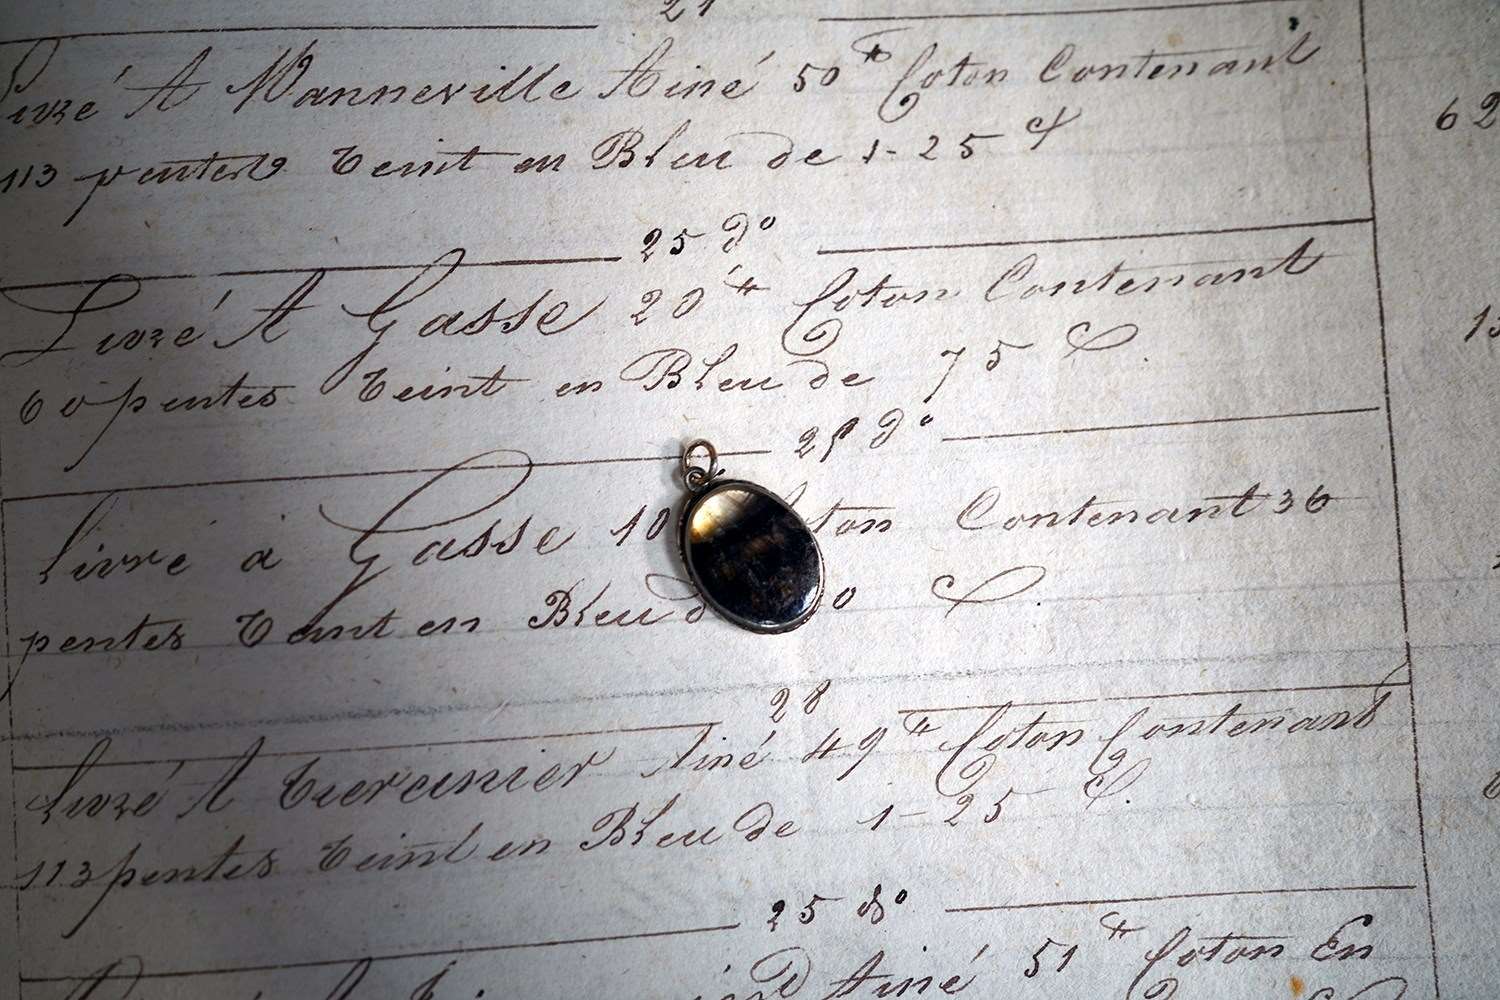 21
Livré A Wanneville Ainé 50 ₶ Coton Contenant
62
113 pentes teint en Bleu de 1-25 c
25 do
Livré A Gasse 20 ₶ Coton Contenant
15
60 pentes teint en Bleu de 75 c.
25 do
Livré à Gasse 10 Contenant 36
pentes teint en Bleu
28
Livré A Ainé 49 ₶ Coton Contenant
113 pentes teint en Bleu de 1-25 c.
25 do
Ainé 51 ₶ Coton En